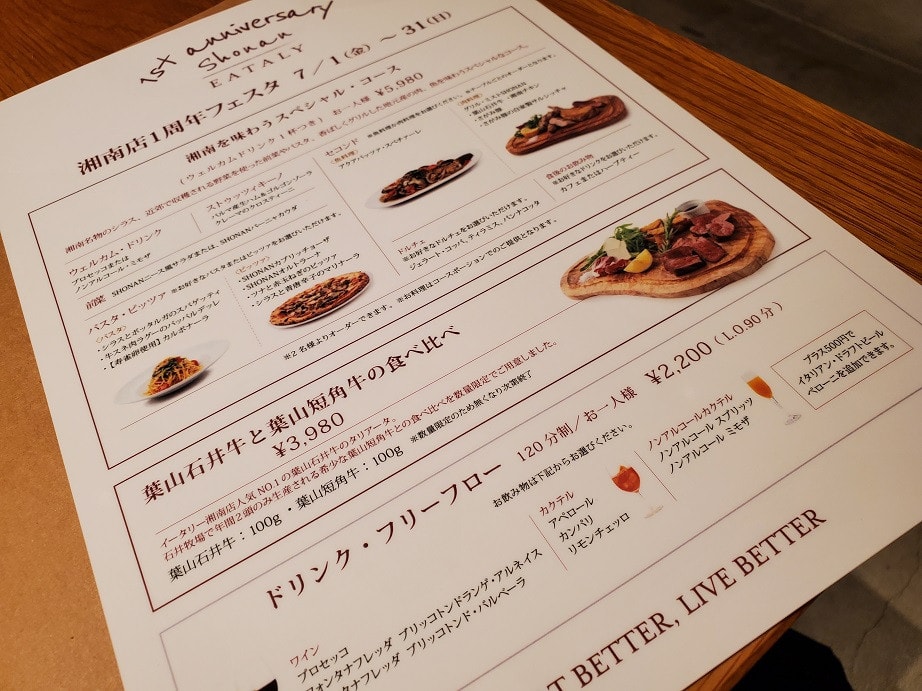 1st anniversary
Shonan
EATALY
湘南店1周年フェスタ 7／1(金) ～ 31(日)
湘南を味わうスペシャル・コース
(ウェルカムドリンク1杯つき) お一人様 ¥5,980
湘南名物のシラス、近郊で収穫される野菜を使った前菜やパスタ、香ばしくグリルした地元産の肉、魚を味わうスペシャルなコース。
ウェルカム・ドリンク
プロセッコまたは
ノンアルコール・ミモザ
ストゥッツィキーノ
パルマ産生ハム&ゴルゴンゾーラ
クレーマのクロスティーニ
前菜 SHONANニース風サラダまたは、SHONANバーニャカウダ
パスタ・ピッツァ ※お好きなパスタまたはピッツァをお選びいただけます。
〈パスタ〉
・シラスとボッタルガのスパゲッティ
・牛スネ肉ラグーのパッパルデッレ
・【寿雀卵使用】カルボナーラ
〈ピッツァ〉
・SHONANカプリッチョーザ
・SHONANオルトラーナ
・ツナと赤玉ねぎのピッツァ
・シラスと青唐辛子のマリナーラ
セコンド
〈魚料理〉
アクアパッツァ・スペチャーレ
〈肉料理〉
グリル・ミストSHONAN
・葉山石井牛 ・湘南チキン
・さがみ豚
・さがみ豚の自家製サルシッチャ
ドルチェ
※お好きなドルチェをお選びいただけます。
ジェラート・コッパ、ティラミス、パンナコッタ
食後のお飲み物
※お好きなドリンクをお選びいただけます。
カフェまたはハーブティー
※2名様よりオーダーできます。 ※お料理はコースポーションでのご提供となります。
葉山石井牛と葉山短角牛の食べ比べ
¥3,980
イータリー湘南店人気NO.1の葉山石井牛のタリアータ。
石井牧場で年間2頭のみ生産される希少な葉山短角牛との食べ比べを数量限定でご用意しました。
葉山石井牛：100g ・葉山短角牛：100g ※数量限定のため無くなり次第終了
ドリンク・フリーフロー 120分制／お一人様 ¥2,200 (L.O.90分)
お飲み物は下記からお選びください。
プラス500円で
イタリアン・ドラフトビール
ペローニを追加できます。
カクテル
アペロール
カンパリ
リモンチェッロ
ノンアルコールカクテル
ノンアルコール スプリッツ
ノンアルコール ミモザ
ワイン
プロセッコ
フォンタナフレッダ ブリッコトンドランゲ・アルネイス
フレッダ ブリッコトンド・バルベーラ
BETTER, LIVE BETTER